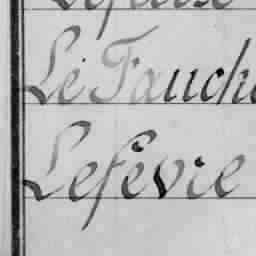 Le Fauche
Lefèvre